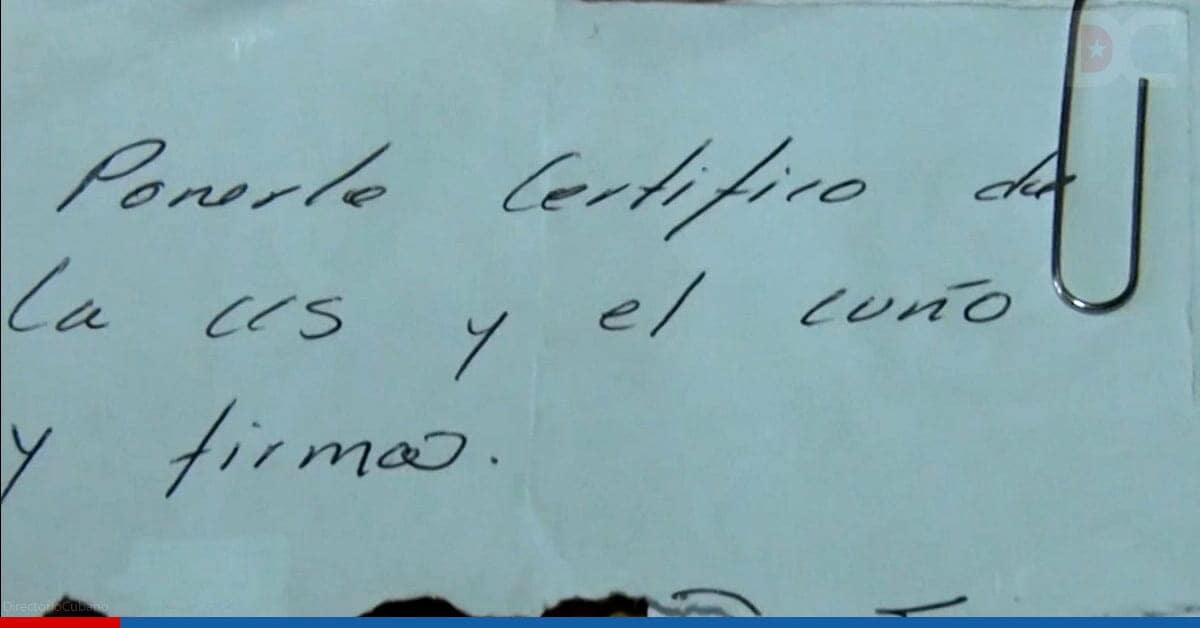 DC
Ponerle Certifico de
la CCS y el cuño
y firmas.
DirectorioCubano